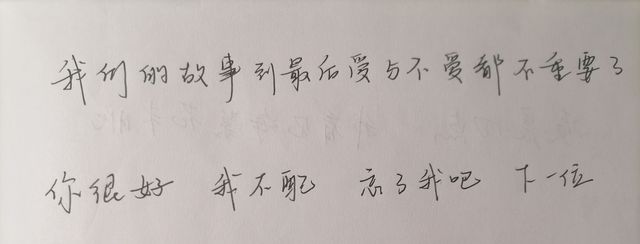 我们的故事到最后爱与不爱都不重要了
你很好 我不配 忘了我吧 下一位